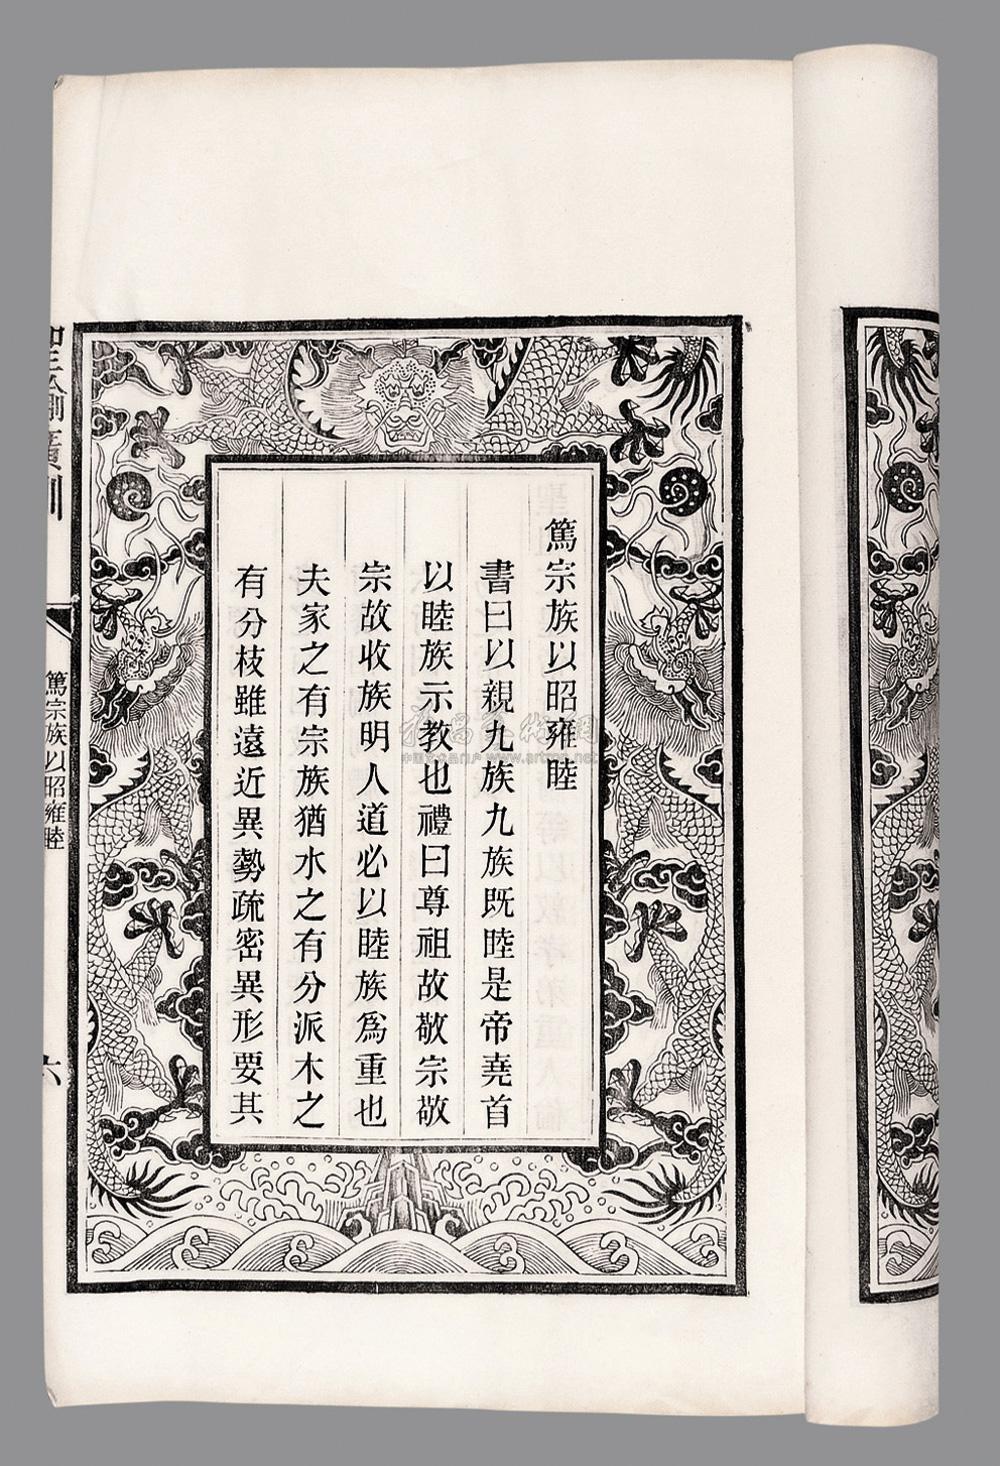 篤宗族以昭雍睦
書曰以親九族九族既睦是帝堯首
以睦族示教也禮曰尊祖故敬宗敬
宗故收族明人道必以睦族爲重也
夫家之有宗族猶水之有分派木之
有分枝雖遠近異勢疏密異形要其
篤宗族以昭雍睦
六
www.artmp.net